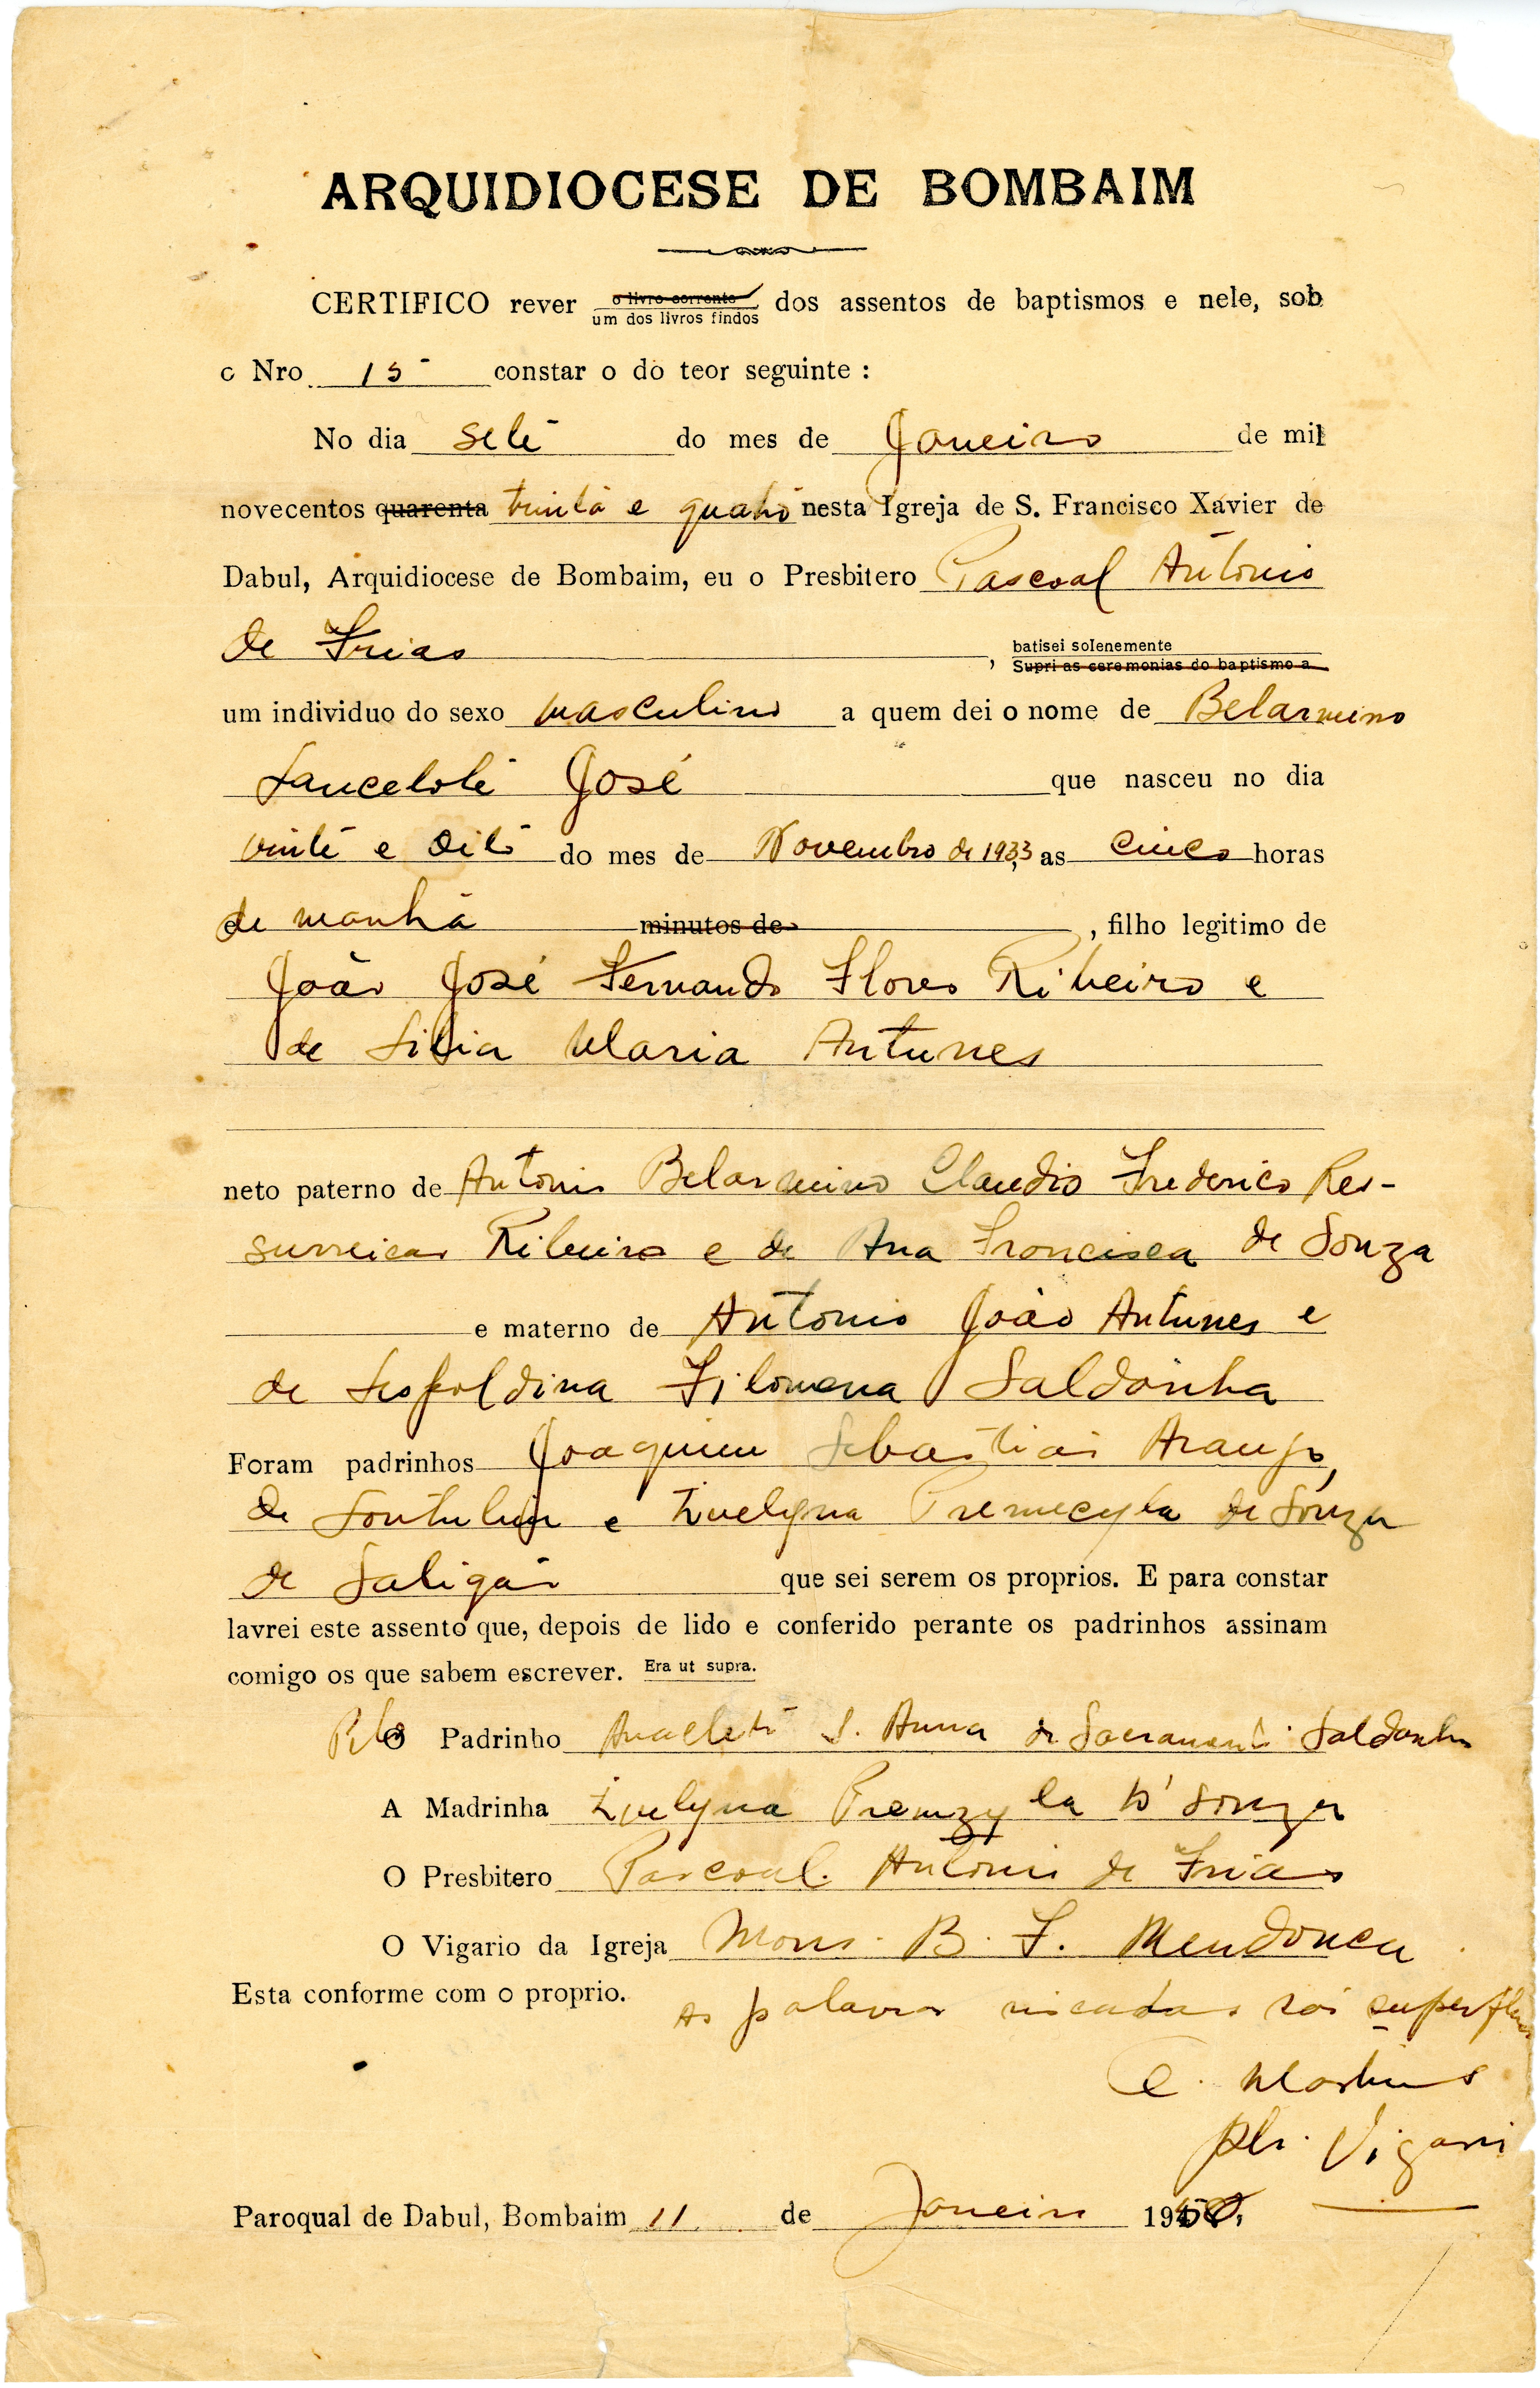 ARQUIDIOCESE DE BOMBAIM
CERTIFICO rever o livro corrente dos assentos de baptismos e nele, sob
um dos livros findos
o Nro. 15 constar o do teor seguinte :
No dia sete do mes de Janeiro de mil
novecentos quarenta trinta e quatro nesta Igreja de S. Francisco Xavier de
Dabul, Arquidiocese de Bombaim, eu o Presbitero Pascoal Antonio
de Frias , batisei solenemente
Supri as ceremonias do baptismo a
um individuo do sexo masculino a quem dei o nome de Belarmino
Lancelote José que nasceu no dia
vinte e oito do mes de Novembro de 1933, as cinco horas
de manhã minutos de , filho legitimo de
João José Fernando Flores Ribeiro e
de Lilia Maria Antunes
neto paterno de Antonio Belarmino Claudio Frederico Res-
surreicao Ribeiro e de Ana Francisca de Souza
e materno de Antonio João Antunes e
de Leopoldina Filomena Saldanha
Foram padrinhos Joaquim Sebastião Araujo,
de e Evelyna de Souza
de Saligão que sei serem os proprios. E para constar
lavrei este assento que, depois de lido e conferido perante os padrinhos assinam
comigo os que sabem escrever. Era ut supra.
Pelo O Padrinho Anacleto S. Anna do Sacramento Saldanha
A Madrinha Evelyna D'Souza
O Presbitero Pascoal Antonio de Frias
O Vigario da Igreja Mons. B. F. Mendonca
Esta conforme com o proprio. As palavras riscadas são superfluas
C. Martins
Vigario
Paroqual de Dabul, Bombaim 11 de Janeiro 1950.